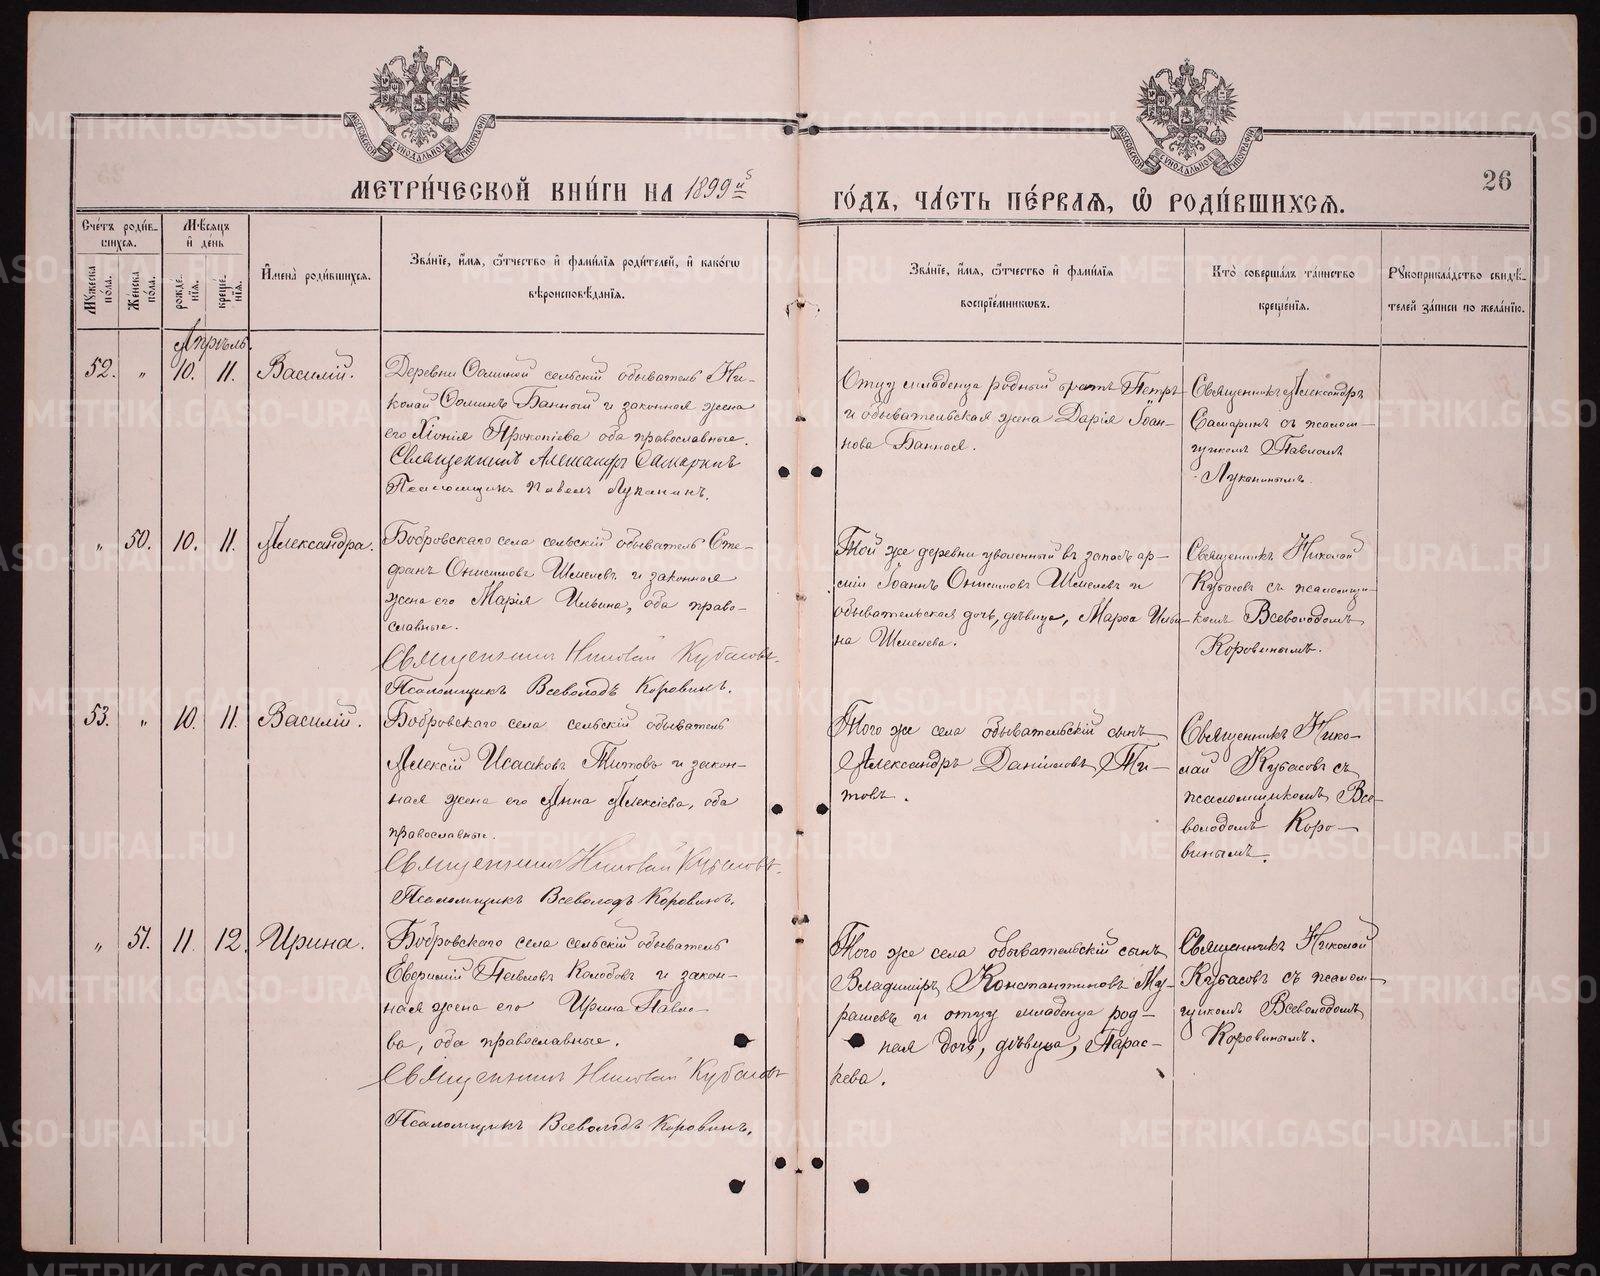 МОСКОВСКОЙ СѴНОДАЛЬНОЙ ТИПОГРАФІИ
МОСКОВСКОЙ СѴНОДАЛЬНОЙ ТИПОГРАФІИ
26
МЕТРИ́ЧЕСКОЙ КНИ́ГИ НА 1899й
ГО́ДЪ, ЧА́СТЬ ПЕ́РВАѦ, Ѡ РОДИ́ВШИХСѦ.
Сче́тъ роди́в-
шихсѧ.
Мꙋжеска по́ла.
Же́нска по́ла.
Мѣ́сѧцъ и҆ де́нь
рожде́-нїѧ.
креще́-нїѧ.
И҆мена̀ роди́вшихсѧ.
Зва́нїе, и҆́мѧ, ѻ҆́тчество и҆ фами́лїѧ роди́телей, и҆ како́гѡ
вѣроисповѣ́данїѧ.
Зва́нїе, и҆́мѧ, ѻ҆́тчество и҆ фами́лїѧ
воспрїе́мникѡвъ.
Кто̀ соверша́лъ та́инство
креще́нїѧ.
Рꙋкоприкла́дство свидѣ́-
телей за́писи по жела́нїю.
Апрѣль.
52. " 10. 11. Василій.
Деревни сельскій обыватель Ни-
колай Банный и законная жена
его Хіонія Прокопіева оба православные.
Священникъ Александръ Самаринъ
Псаломщикъ Павелъ Луканинъ.
Отцу младенца родный братъ Петръ
и обывательская жена Дарія Іоан-
нова Банная.
Священникъ Александръ
Самаринъ съ псалом-
щикомъ Павломъ
Луканинымъ.
" 50. 10. 11. Александра.
Бобровскаго села сельскій обыватель Сте-
фанъ Онисимовъ Шмелевъ и законная
жена его Марія Ильина, оба право-
славные.
Священникъ Николай Кубасовъ.
Псаломщикъ Всеволодъ Коровинъ.
Той же деревни уволенный въ запасъ ар-
міи Іоаннъ Онисимовъ Шмелевъ и
обывательская дочь, дѣвица, Марѳа Ильи-
на Шмелева.
Священникъ Николай
Кубасовъ съ псаломщи-
комъ Всеволодомъ
Коровинымъ.
53. " 10. 11. Василій.
Бобровскаго села сельскій обыватель
Алексій Исааковъ Титовъ и закон-
ная жена его Анна Алексіева, оба
православные.
Священникъ Николай Кубасовъ.
Псаломщикъ Всеволодъ Коровинъ.
Того же села обывательскій сынъ
Александръ Даніиловъ Ти-
товъ.
Священникъ Нико-
лай Кубасовъ съ
псаломщикомъ Все-
володомъ Коро-
винымъ.
" 51. 11. 12. Ирина.
Бобровскаго села сельскій обыватель
Евѳимій Павловъ Колобовъ и закон-
ная жена его Ирина Павло-
ва, оба православные.
Священникъ Николай Кубасовъ
Псаломщикъ Всеволодъ Коровинъ.
Того же села обывательскій сынъ
Владиміръ Константиновъ Му-
рашевъ и отцу младенца род-
ная дочь, дѣвица, Парас-
кева.
Священникъ Николай
Кубасовъ съ псалом-
щикомъ Всеволодомъ
Коровинымъ.
METRIKI.GASO-URAL.RU